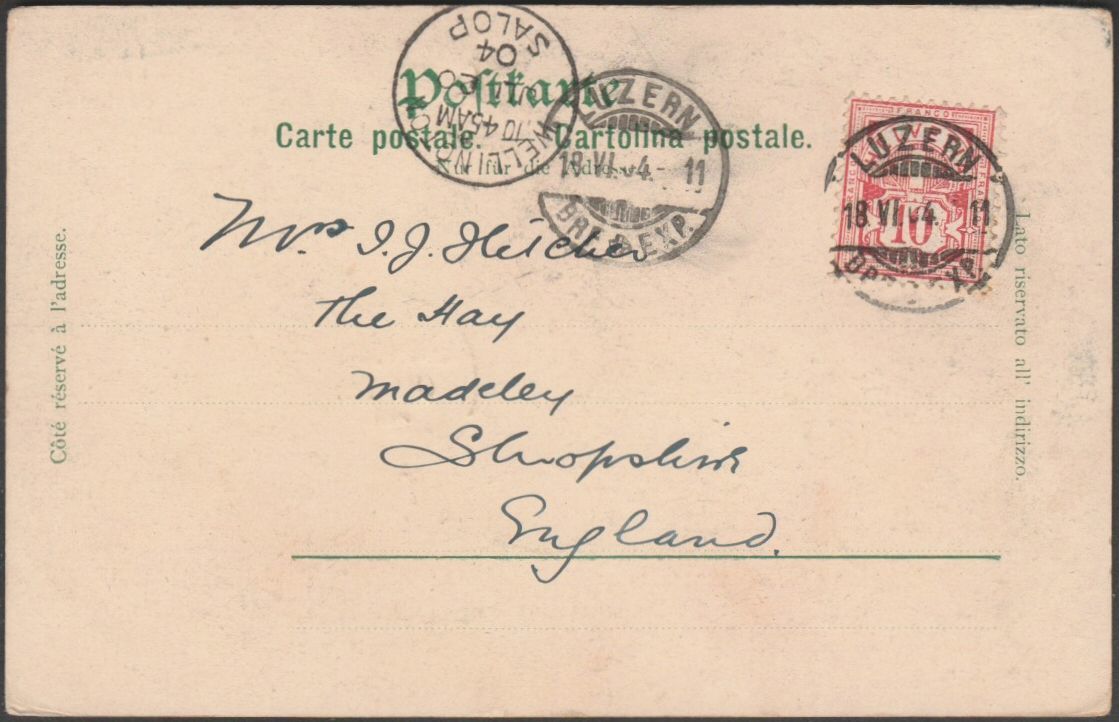 Postkarte
Carte postale. Cartolina postale.
Nur für die Adresse.
WELLINGTON
10 45AM
04
SALOP
LUZERN
18 VI. 04. - 11
BRF. EXP.
FRANCO
10
LUZERN
18 VI 04. 11
EXP.
Mrs I. J. Fletcher
The Hay
Madeley
Shropshire
England.
Côté réservé à l'adresse.
Lato riservato all' indirizzo.